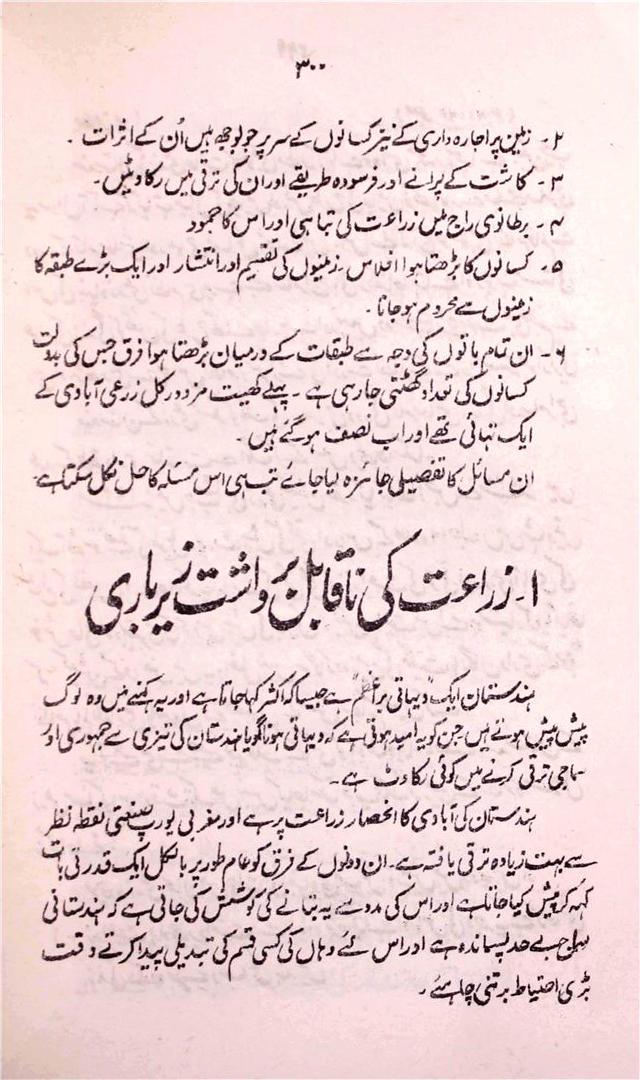 ۳۰۰
۲۔ زمین پر اجارہ داری کے نیز کسانوں کے سر پر جو بوجھ ہیں اُن کے اثرات ۔
۳۔ کاشت کے پرانے اور فرسودہ طریقے اور ان کی ترقی میں رکاوٹیں۔
۴۔ برطانوی راج میں زراعت کی تباہی اور اس کا جمود
۵۔ کسانوں کا بڑھتا ہوا افلاس ۔ زمینوں کی تقسیم اور انتشار اور ایک بڑے طبقہ کا
زمینوں سے محروم ہو جانا ۔
۶۔ ان تمام باتوں کی وجہ سے طبقات کے درمیان بڑھتا ہوا فرق جس کی بدولت
کسانوں کی تعداد گھٹتی جا رہی ہے ۔ پہلے کھیت مزدور کل زرعی آبادی کے
ایک تہائی تھے اور اب نصف ہو گئے ہیں ۔
ان مسائل کا تفصیلی جائزہ لیا جائے تب ہی اس مسئلہ کا حل نکل سکتا ہے۔
۱۔ زراعت کی ناقابل برداشت زیرباری
ہندستان ایک "دیہاتی براعظم" ہے جیسا کہ اکثر کہا جاتا ہے اور یہ کہنے میں وہ لوگ
پیش پیش ہوتے ہیں جن کو یہ امید ہوتی ہے کہ دیہاتی ہونا گویا ہندستان کی تیزی سے جمہوری اور
سماجی ترقی کرنے میں کوئی رکاوٹ ہے ۔
ہندستان کی آبادی کا انحصار زراعت پر ہے اور مغربی یورپ صنعتی نقطہ نظر
سے بہت زیادہ ترقی یافتہ ہے ۔ ان دونوں کے فرق کو عام طور پر بالکل ایک قدرتی بات
کہہ کر پیش کیا جاتا ہے اور اس کی مدد سے یہ بتانے کی کوشش کی جاتی ہے کہ ہندستانی
سماج بے حد پسماندہ ہے اور اس لئے وہاں کی کسی قسم کی تبدیلی پیدا کرتے وقت
بڑی احتیاط برتنی چاہئے ۔